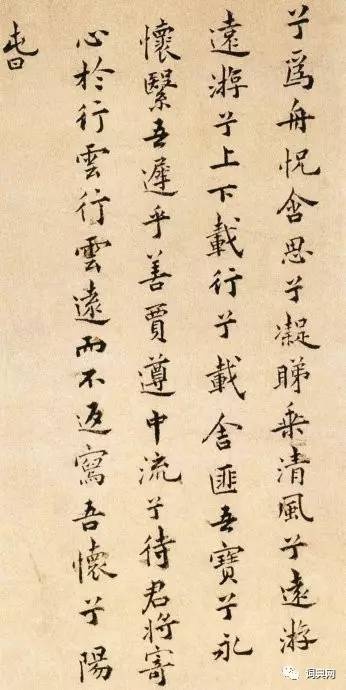 兮爲舟怳含思兮凝睇乘清風兮遠游
遠游兮上下載行兮載舍匪吾寶兮永
懷繄吾遲乎善賈遵中流兮待君將寄
心於行雲行雲遠而不返寫吾懷兮陽
旾
词典网